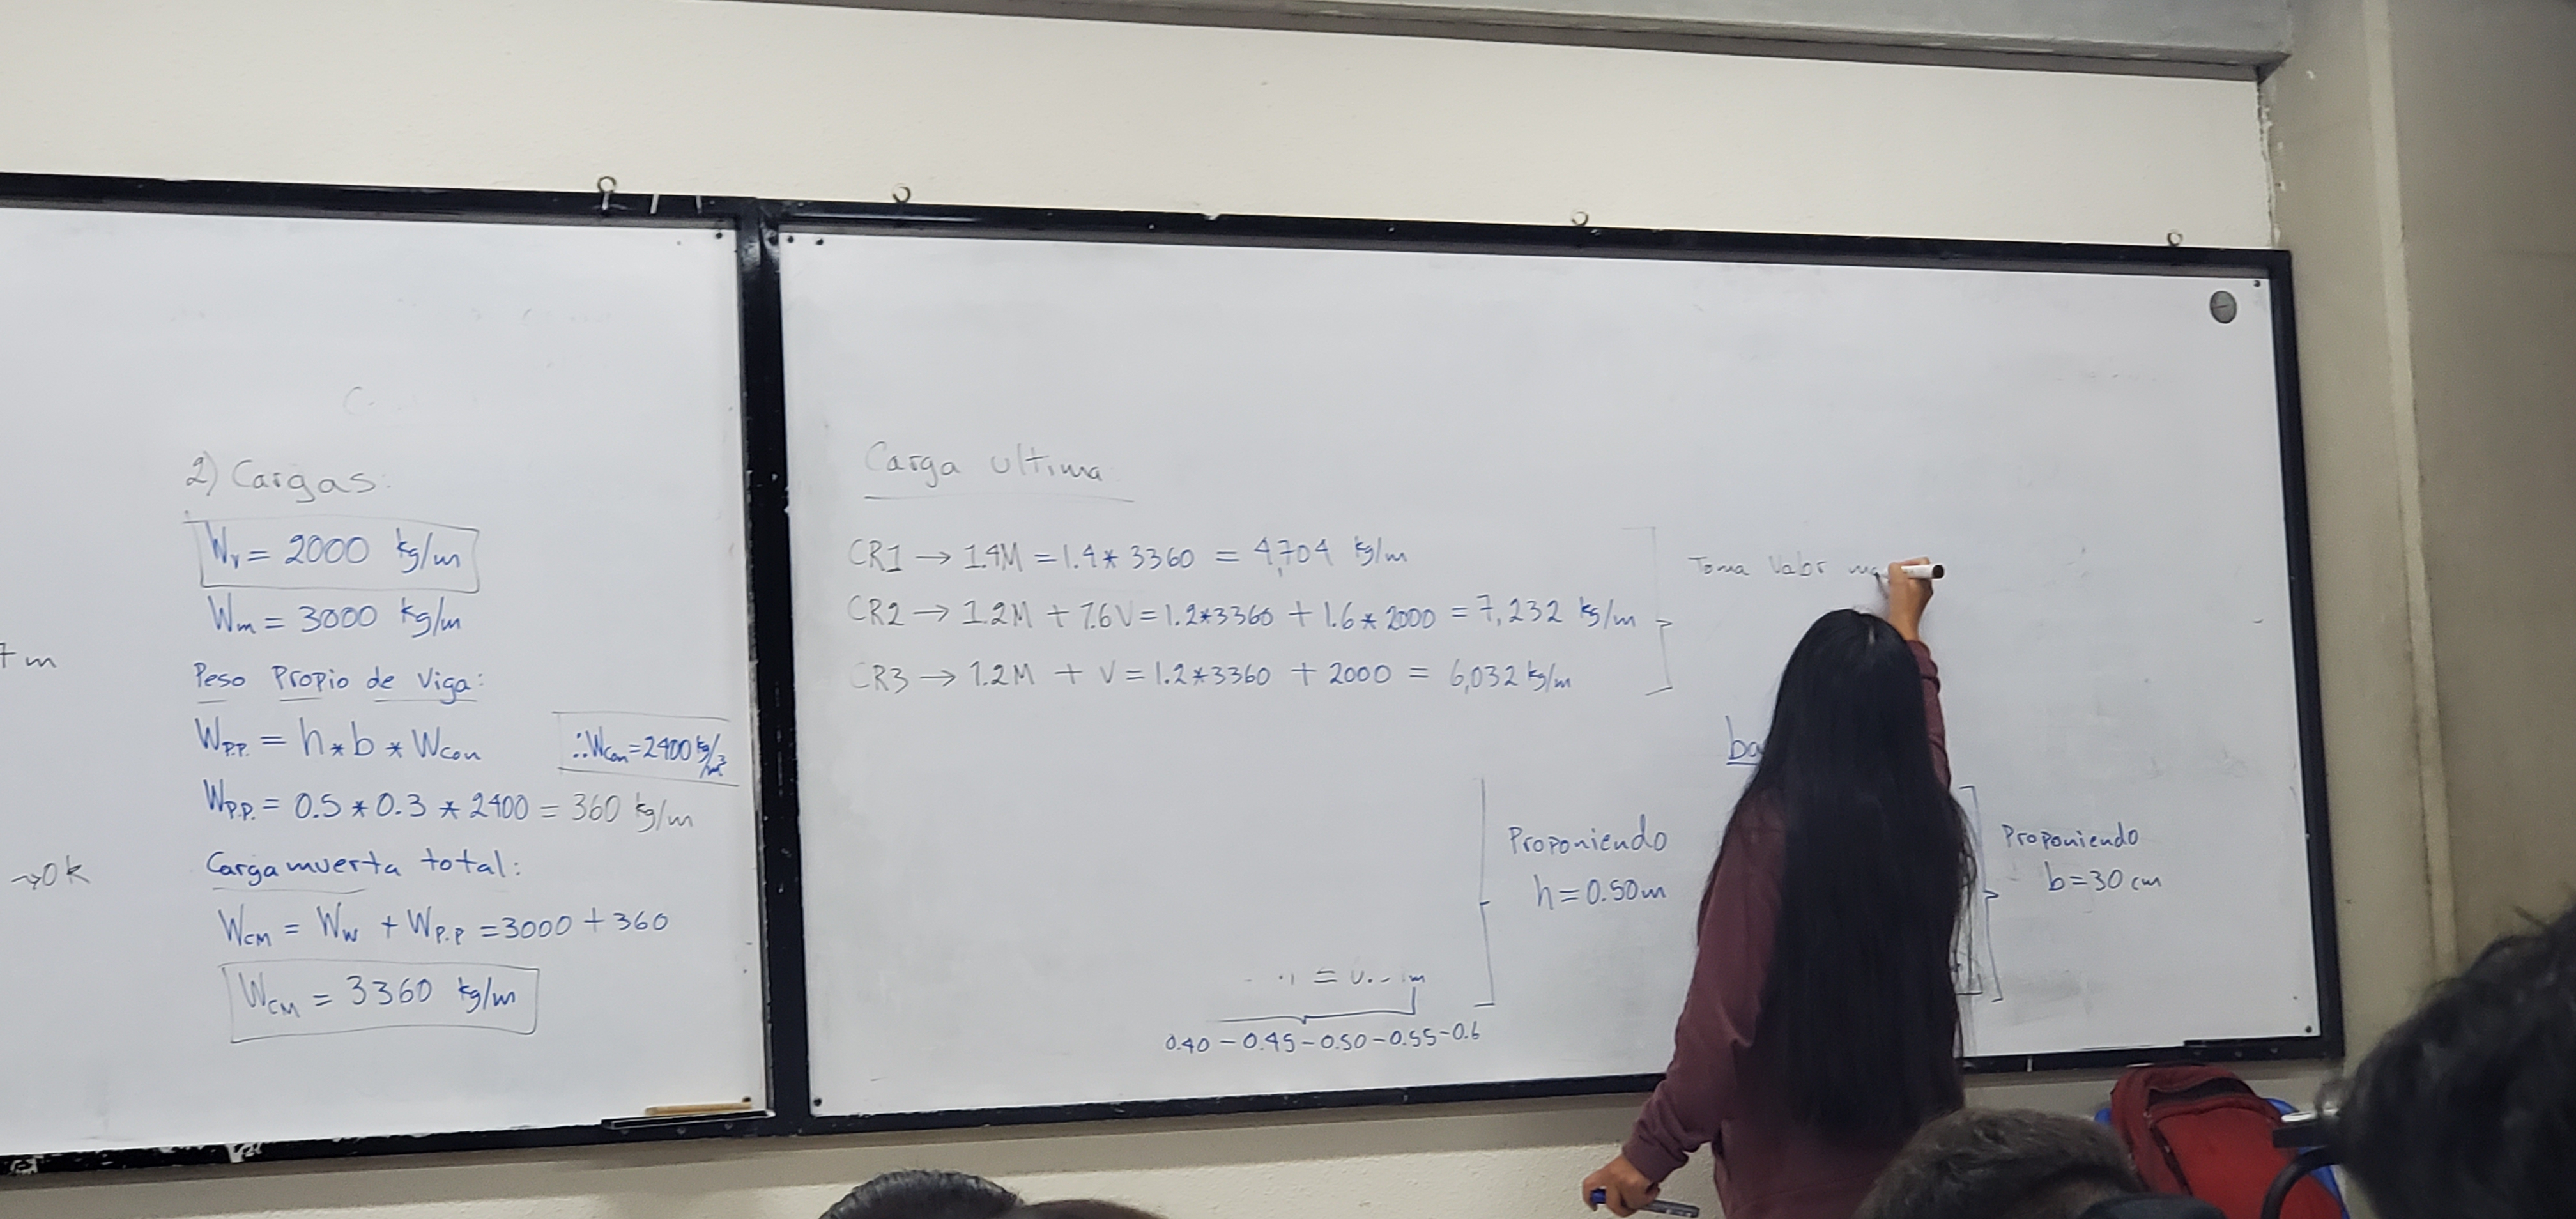 7 m
→ Ok
2) Cargas:
Wv = 2000 kg/m
Wm = 3000 kg/m
Peso Propio de Viga:
WP.P. = h * b * Wcon
∴ Wcon = 2400 kg/m³
WP.P. = 0.5 * 0.3 * 2400 = 360 kg/m
Carga muerta total:
WCM = Ww + WP.P = 3000 + 360
WCM = 3360 kg/m
Carga ultima
CR1 → 1.4M = 1.4 * 3360 = 4,704 kg/m
CR2 → 1.2M + 1.6V = 1.2*3360 + 1.6 * 2000 = 7,232 kg/m
CR3 → 1.2M + V = 1.2*3360 + 2000 = 6,032 kg/m
Toma Valor
Proponiendo
h = 0.50m
0.40 - 0.45 - 0.50 - 0.55 - 0.6
Proponiendo
b = 30 cm